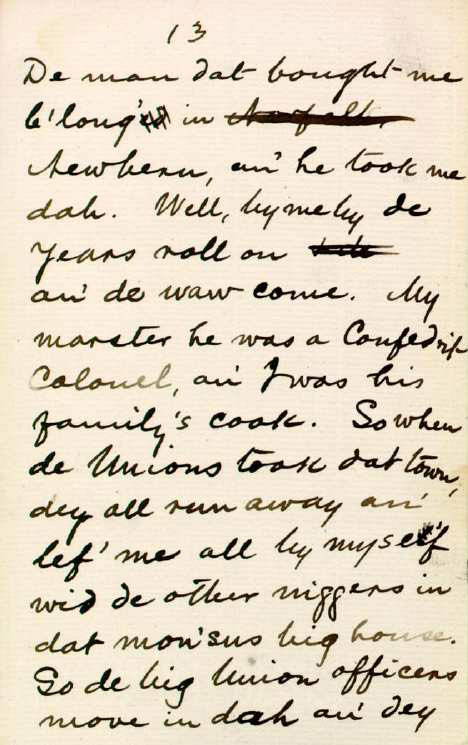 13
De man dat bought me
b'long' in
Newbern, an' he took me
dah. Well, bymeby de
years roll on
an' de waw come. My
marster he was a Confedrit
Colonel, an' I was his
family's cook. So when
de Unions took dat town,
dey all run away an'
lef' me all by myse'f
wid de other niggers in
dat mon'sus big house.
So de big Union officers
move in dah an' dey